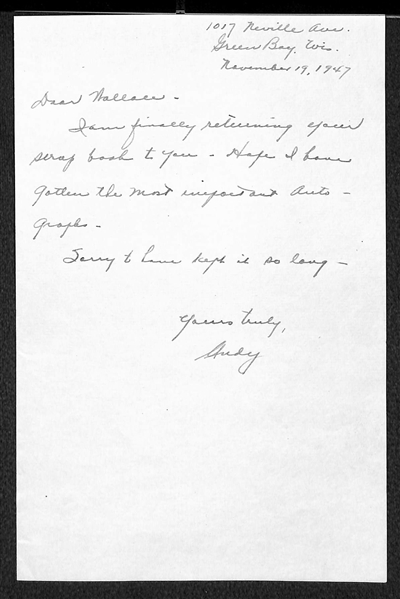 1017 Neville Ave.
Green Bay, Wis.
November 19, 1947
Dear Wallace -
I am finally returning your
scrap book to you - Hope I have
gotten the most important auto -
graphs -
Sorry to have kept it so long -
Yours truly,
Andy